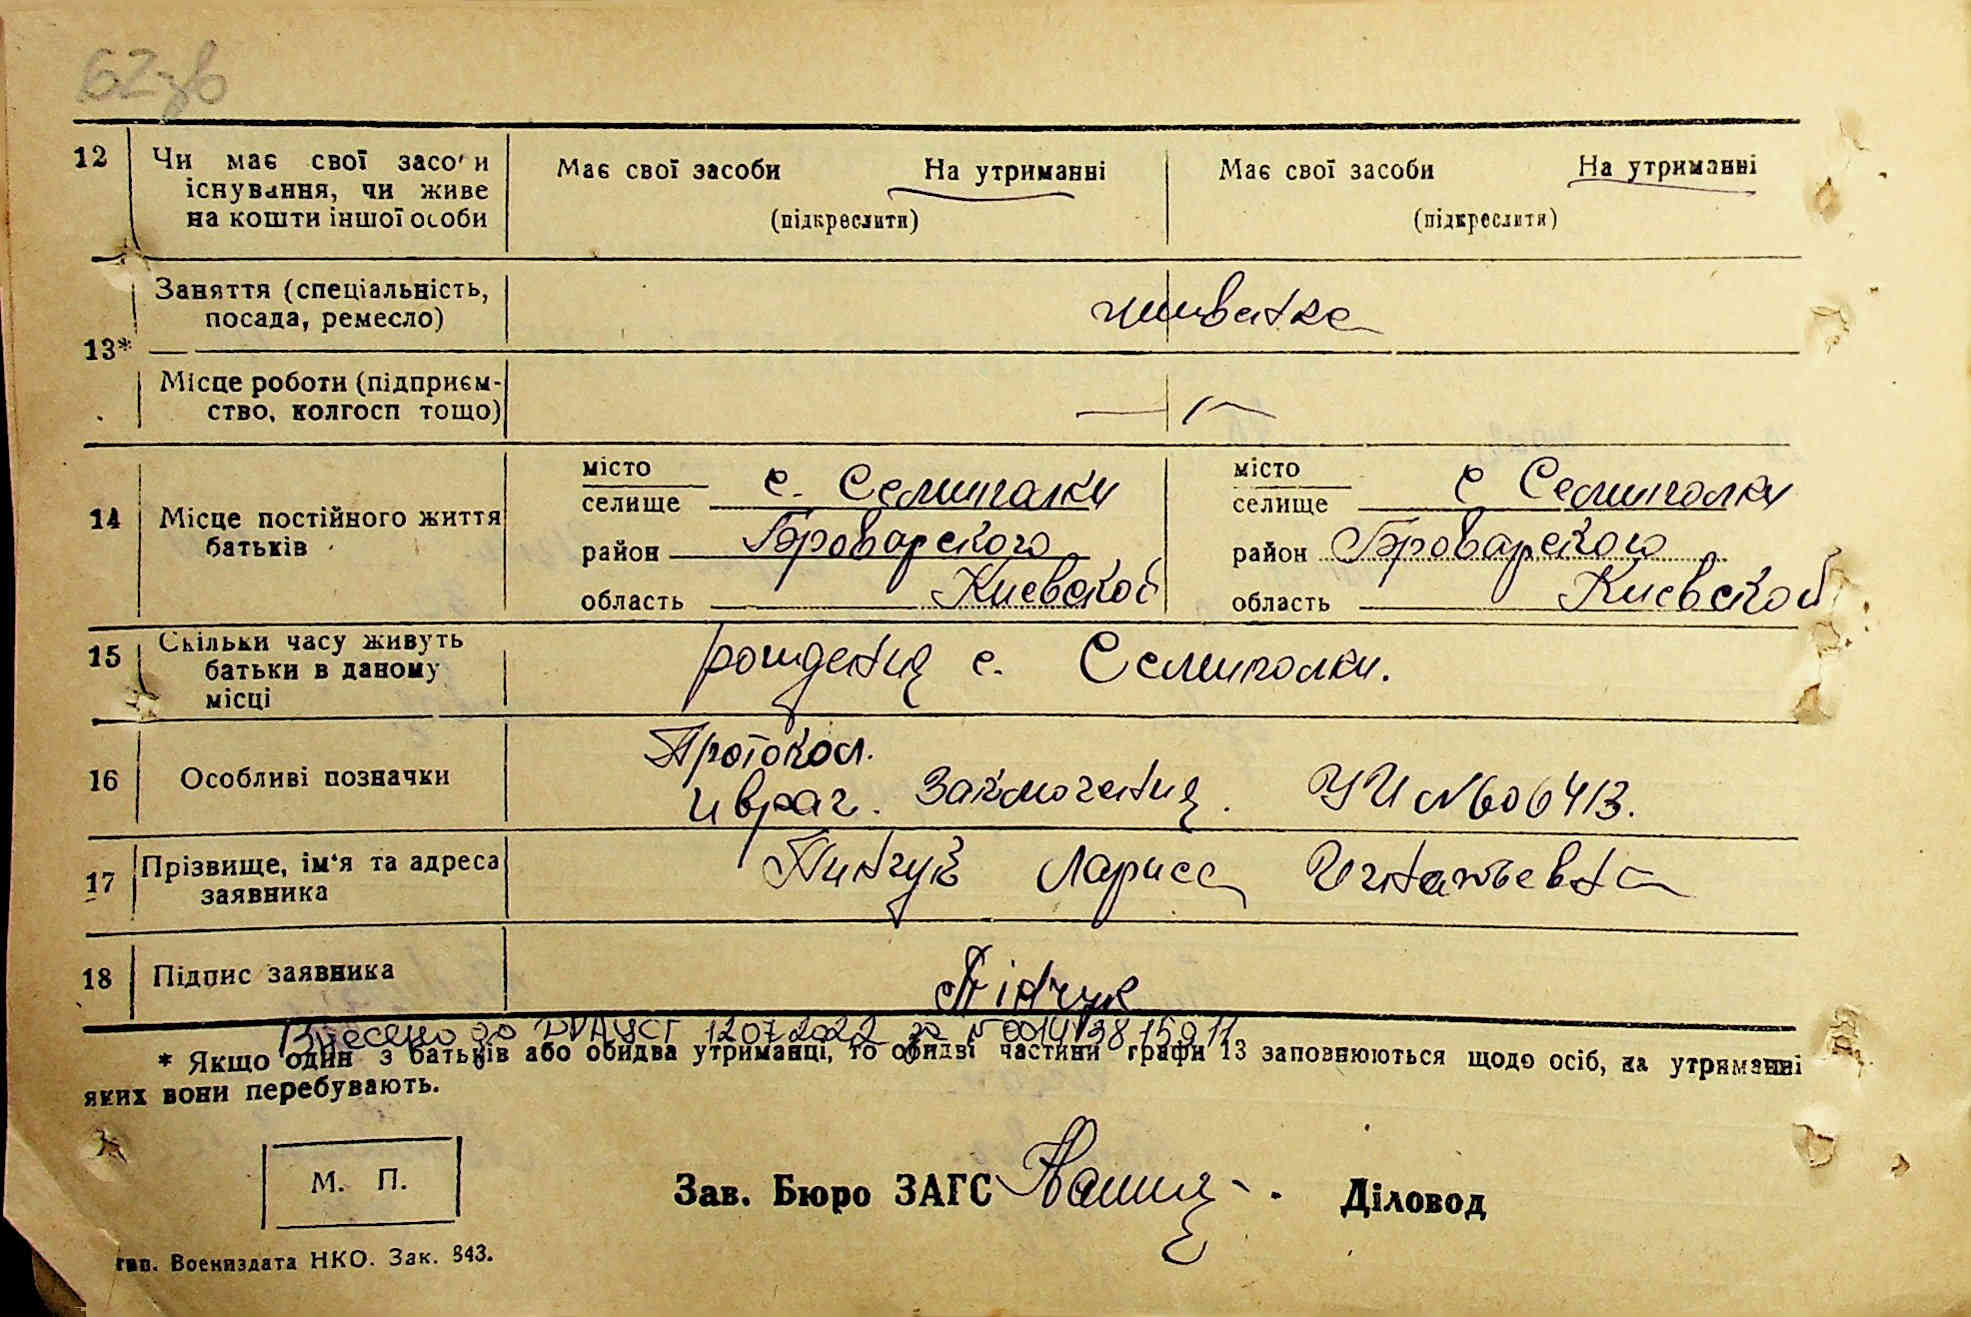 62зв
12 Чи має свої засо'и Має свої засоби На утриманні Має свої засоби На утриманні
існування, чи живе
на кошти іншої особи (підкреслити) (підкреслити)
Заняття (спеціальність,
посада, ремесло)
13*
Місце роботи (підприєм-
ство, колгосп тощо)
місто місто
селище с. Семиполки селище с Семиполки
14 Місце постійного життя
батьків район Броварского район Броварского
область Киевской область Киевской
15 Скільки часу живуть
батьки в даному рождения с. Семиполки.
місці
Протокол.
16 Особливі позначки и врач. Заключения. УИ №606413.
17 Прізвище, ім'я та адреса Пинчук Лариса Игнатьевна
заявника
18 Підпис заявника Пінчук
Внесено до ДРАЦСГ 12 07 2022 за № 00141381591 1
* Якщо один з батьків або обидва утриманці, то обидві частини графи 13 заповнюються щодо осіб, на утриманні
яких вони перебувають.
М. П.
Зав. Бюро ЗАГС Діловод
тип. Воениздата НКО. Зак. 843.